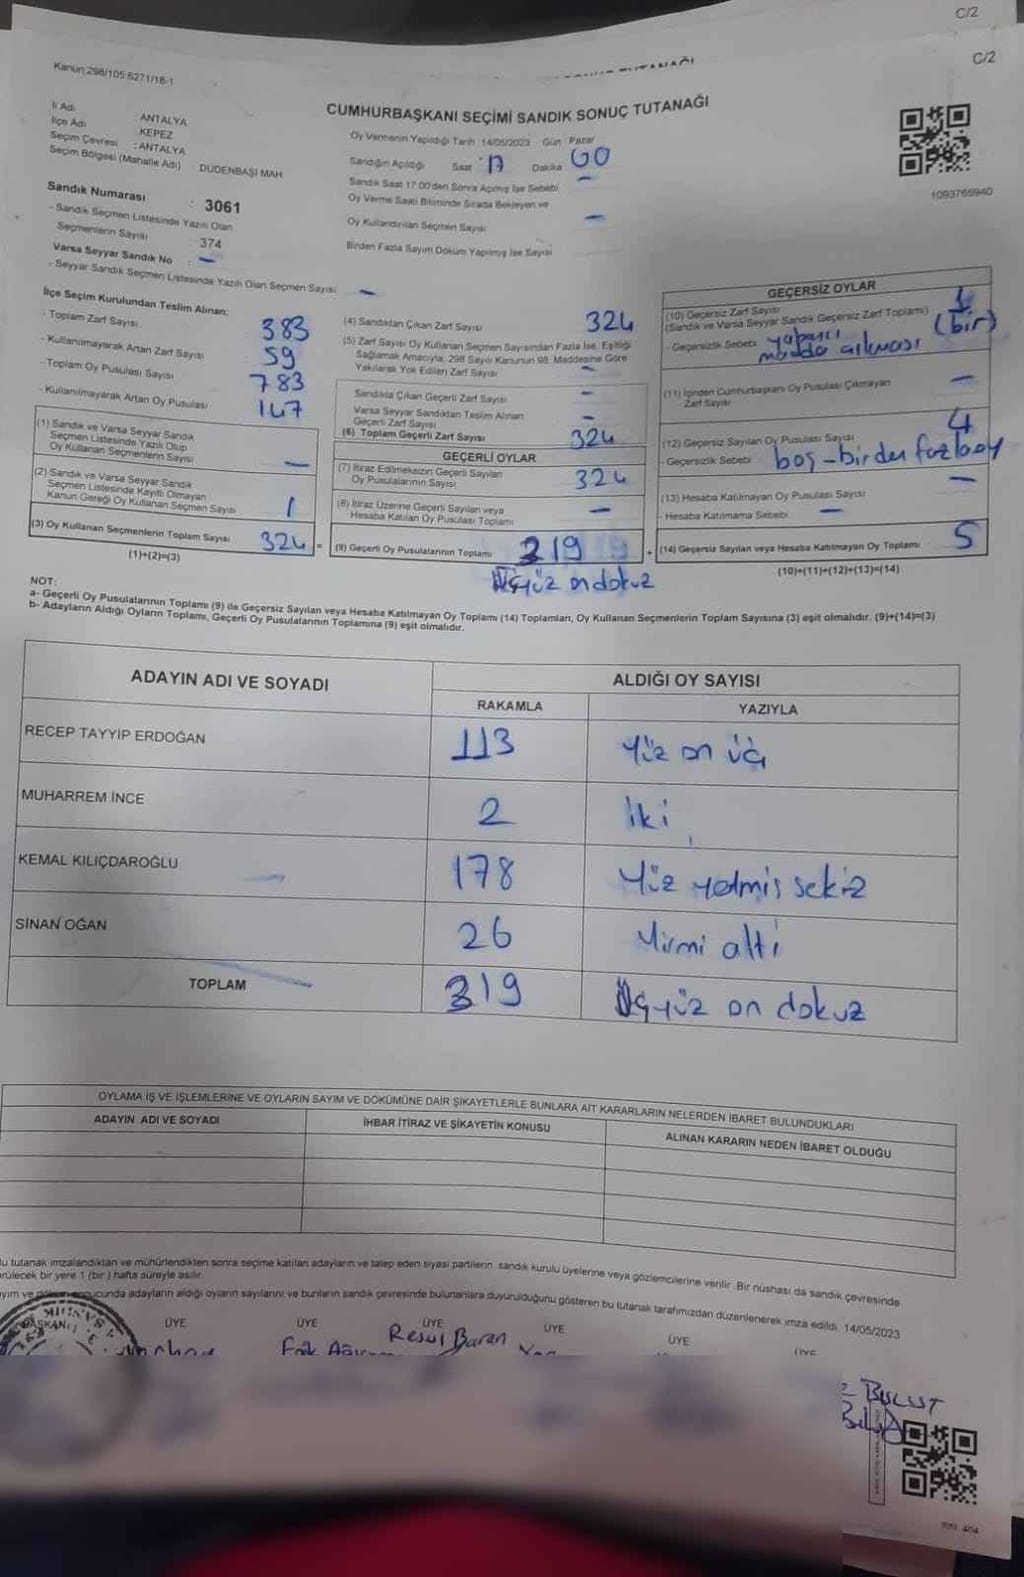 C/2
C/2
Kanun:298/105:6271/18-1
CUMHURBAŞKANI SEÇİMİ SANDIK SONUÇ TUTANAĞI
İl Adı : ANTALYA
İlçe Adı : KEPEZ
Seçim Çevresi : ANTALYA
Seçim Bölgesi (Mahalle Adı) DÜDENBAŞI MAH
Oy Vermenin Yapıldığı Tarih 14/05/2023 Gün : Pazar
Sandığın Açıldığı Saat : 17 Dakika 00
Sandık Saat 17.00'den Sonra Açılmış İse Sebebi —
Oy Verme Saati Bitiminde Sırada Bekleyen ve
Oy Kullandırılan Seçmen Sayısı —
Birden Fazla Sayım Döküm Yapılmış İse Sayısı
1093765940
Sandık Numarası : 3061
- Sandık Seçmen Listesinde Yazılı Olan
Seçmenlerin Sayısı : 374
Varsa Seyyar Sandık No : —
- Seyyar Sandık Seçmen Listesinde Yazılı Olan Seçmen Sayısı —
İlçe Seçim Kurulundan Teslim Alınan;
- Toplam Zarf Sayısı 383
- Kullanılmayarak Artan Zarf Sayısı 59
- Toplam Oy Pusulası Sayısı 783
- Kullanılmayarak Artan Oy Pusulası 147
(1) Sandık ve Varsa Seyyar Sandık
Seçmen Listesinde Yazılı Olup
Oy Kullanan Seçmenlerin Sayısı —
(2) Sandık ve Varsa Seyyar Sandık
Seçmen Listesinde Kayıtlı Olmayan
Kanun Gereği Oy Kullanan Seçmen Sayısı 1
(3) Oy Kullanan Seçmenlerin Toplam Sayısı 324 =
(1)+(2)=(3)
(4) Sandıktan Çıkan Zarf Sayısı 324
(5) Zarf Sayısı Oy Kullanan Seçmen Sayısından Fazla İse, Eşitliği
Sağlamak Amacıyla, 298 Sayılı Kanunun 98. Maddesine Göre
Yakılarak Yok Edilen Zarf Sayısı —
Sandıkta Çıkan Geçerli Zarf Sayısı —
Varsa Seyyar Sandıktan Teslim Alınan
Geçerli Zarf Sayısı —
(6) Toplam Geçerli Zarf Sayısı 324
GEÇERLİ OYLAR
(7) İtiraz Edilmeksizin Geçerli Sayılan
Oy Pusulalarının Sayısı 324
(8) İtiraz Üzerine Geçerli Sayılan veya
Hesaba Katılan Oy Pusulası Toplamı —
(9) Geçerli Oy Pusulalarının Toplamı 319 +
Üçyüz on dokuz
GEÇERSİZ OYLAR
(10) Geçersiz Zarf Sayısı 1
(Sandık ve Varsa Seyyar Sandık Geçersiz Zarf Toplamı) (bir)
- Geçersizlik Sebebi yabancı
madde çıkması
(11) İçinden Cumhurbaşkanı Oy Pusulası Çıkmayan
Zarf Sayısı —
(12) Geçersiz Sayılan Oy Pusulası Sayısı 4
- Geçersizlik Sebebi boş-birden fazla oy
(13) Hesaba Katılmayan Oy Pusulası Sayısı —
- Hesaba Katılmama Sebebi —
(14) Geçersiz Sayılan veya Hesaba Katılmayan Oy Toplamı 5
(10)+(11)+(12)+(13)=(14)
NOT:
a- Geçerli Oy Pusulalarının Toplamı (9) ile Geçersiz Sayılan veya Hesaba Katılmayan Oy Toplamı (14) Toplamları, Oy Kullanan Seçmenlerin Toplam Sayısına (3) eşit olmalıdır. (9)+(14)=(3)
b- Adayların Aldığı Oyların Toplamı, Geçerli Oy Pusulalarının Toplamına (9) eşit olmalıdır.
ADAYIN ADI VE SOYADI ALDIĞI OY SAYISI
RAKAMLA YAZIYLA
RECEP TAYYİP ERDOĞAN 113 Yüz on üç
MUHARREM İNCE 2 iki
KEMAL KILIÇDAROĞLU 178 Yüz yetmiş sekiz
SİNAN OĞAN 26 Yirmi altı
TOPLAM 319 Üçyüz on dokuz
OYLAMA İŞ VE İŞLEMLERİNE VE OYLARIN SAYIM VE DÖKÜMÜNE DAİR ŞİKAYETLERLE BUNLARA AİT KARARLARIN NELERDEN İBARET BULUNDUKLARI
ADAYIN ADI VE SOYADI İHBAR İTİRAZ VE ŞİKAYETİN KONUSU ALINAN KARARIN NEDEN İBARET OLDUĞU
u tutanak imzalandıktan ve mühürlendikten sonra seçime katılan adayların ve talep eden siyasi partilerin sandık kurulu üyelerine veya gözlemcilerine verilir. Bir nüshası da sandık çevresinde
rülecek bir yere 1 (bir) hafta süreyle asılır.
yım ve döküm sonucunda adayların aldığı oyların sayılarını ve bunların sandık çevresinde bulunanlara duyurulduğunu gösteren bu tutanak tarafımızdan düzenlenerek imza edildi. 14/05/2023
BAŞKAN ÜYE ÜYE ÜYE ÜYE ÜYE ÜYE
Resul Baran
BULUT